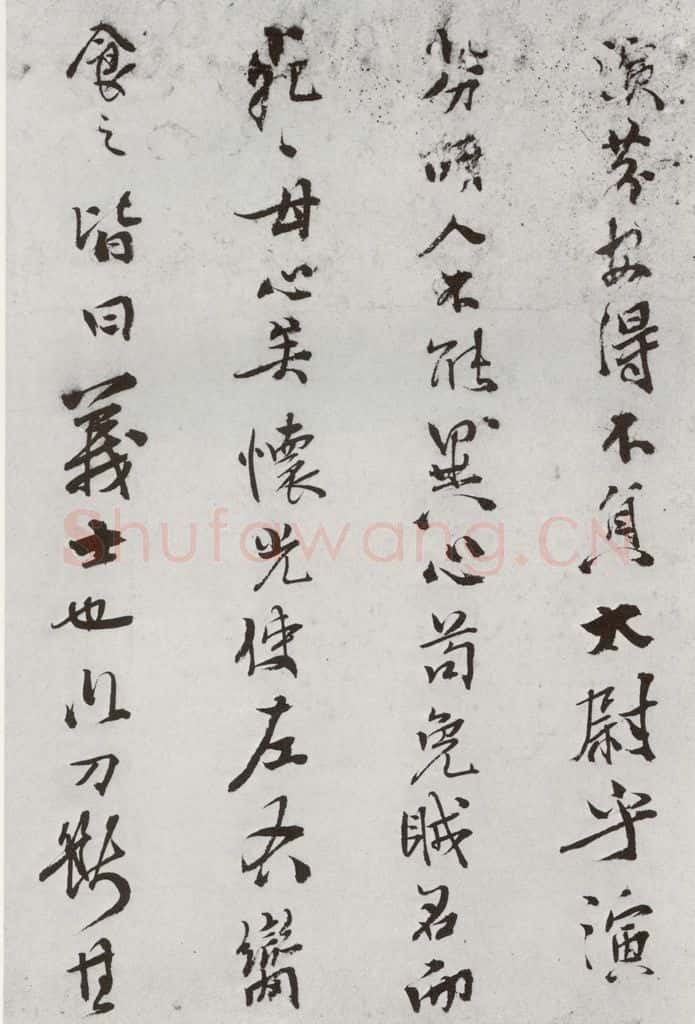 演芬安得不負太尉乎演
芬胡人不能異心苟免賊名而
死〻甘心矣懷光使左右臠
食之皆曰義士也以刀斷其
Shufawang.CN